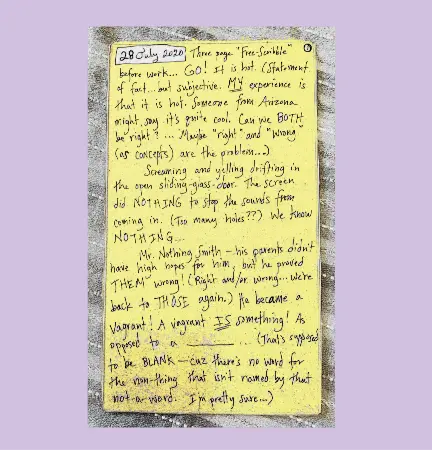 28 July 2020 Three page "Free-Scribble"
before work... GO! It is hot. (Statement
of fact... but subjective. MY experience is
that it is hot. Someone from Arizona
might say it's quite cool. Can we BOTH
be right? ... Maybe "right" and "wrong
(as concepts) are the problem...)
Screaming and yelling drifting in
the open sliding-glass-door. The screen
did NOTHING to stop the sounds from
coming in. (Too many holes??) We know
NOTHING...
Mr. Nothing Smith – his parents didn't
have high hopes for him, but he proved
THEM wrong! (Right and/or wrong... we're
back to THOSE again.) He became a
vagrant! A vagrant IS something! As
opposed to a ______ ... (That's supposed
to be BLANK – cuz there's no word for
the non-thing that isn't named by that
not-a-word. I'm pretty sure...)